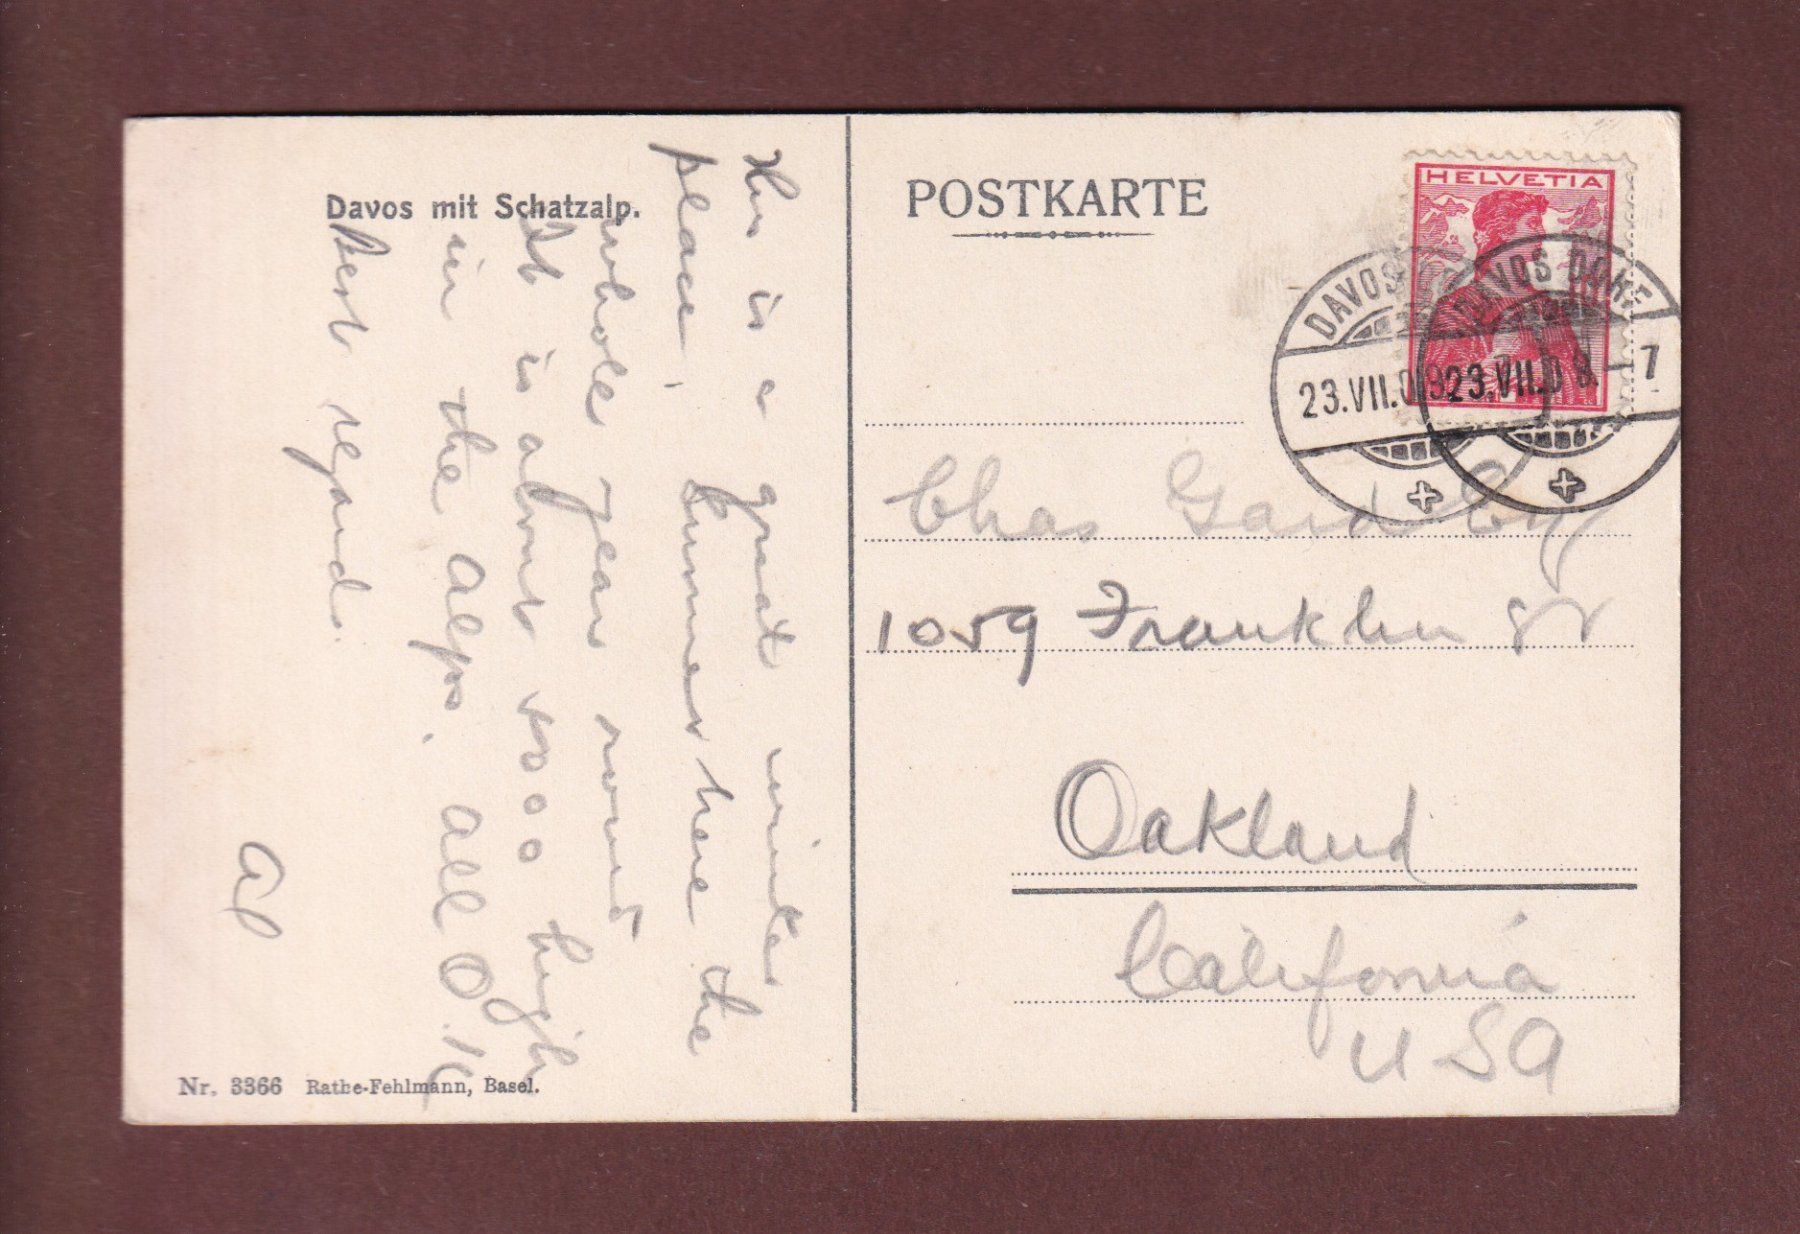 Davos mit Schatzalp.
POSTKARTE
HELVETIA
DAVOS
DAVOS DORF
23.VII.09
23.VII.09. 7
is a great winter
place, Summer here the
whole year round
It is about 5000 high
in the alps. all O.K
Best regards.
Al
Chas
1059 Franklin St
Oakland
California
USA
Nr. 3366 Rathe-Fehlmann, Basel.